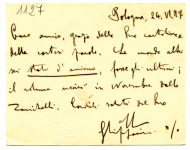 1127
Bologna, 26. VI. 87
Caro amico, grazie della sua cartolina
delle cortesi parole. Che mando altri
sei stati d'animo, forse gli ultimi;
il volume uscirà in novembre dallo
Zanichelli. Cordiali saluti dal suo